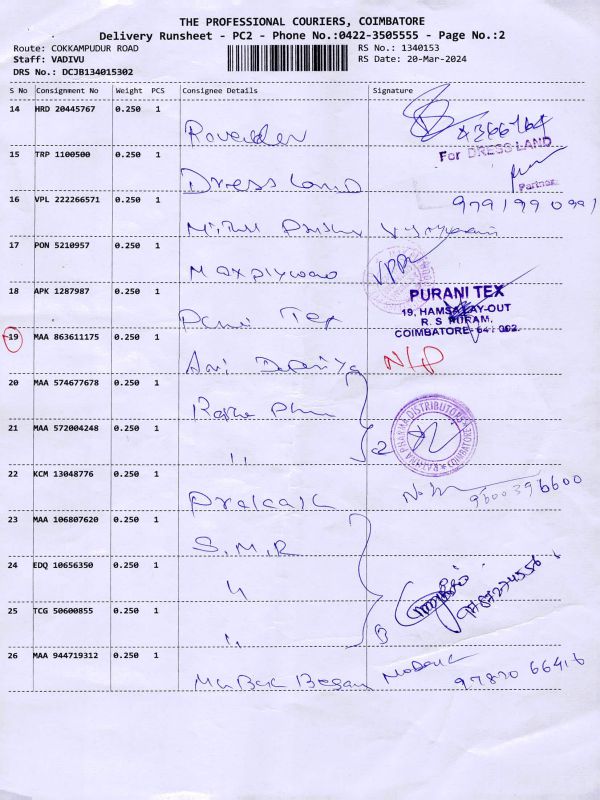 THE PROFESSIONAL COURIERS, COIMBATORE
Delivery Runsheet - PC2 - Phone No.:0422-3505555 - Page No.:2
Route: COKKAMPUDUR ROAD RS No.: 1340153
Staff: VADIVU RS Date: 20-Mar-2024
DRS No.: DCJB134015302
S No Consignment No Weight PCS Consignee Details Signature
14 HRD 20445767 0.250 1
For DRESS LAND
15 TRP 1100500 0.250 1
Dress Land
Partner
16 VPL 222266571 0.250 1
9791990991
17 PON 5210957 0.250 1
Maxplywood
18 APK 1287987 0.250 1
PURANI TEX
19, HAMSA LAY-OUT
R. S PURAM,
COIMBATORE-641 002.
Tex
19 MAA 863611175 0.250 1
N/P
20 MAA 574677678 0.250 1
21 MAA 572004248 0.250 1
2
RATHNA PHARMA DISTRIBUTORS
COIMBATORE
22 KCM 13048776 0.250 1
Prakash
9600396600
23 MAA 106807620 0.250 1
S.M.R
24 EDQ 10656350 0.250 1
"
25 TCG 50600855 0.250 1
" 3
26 MAA 944719312 0.250 1
Mubarak Began
97870 66416